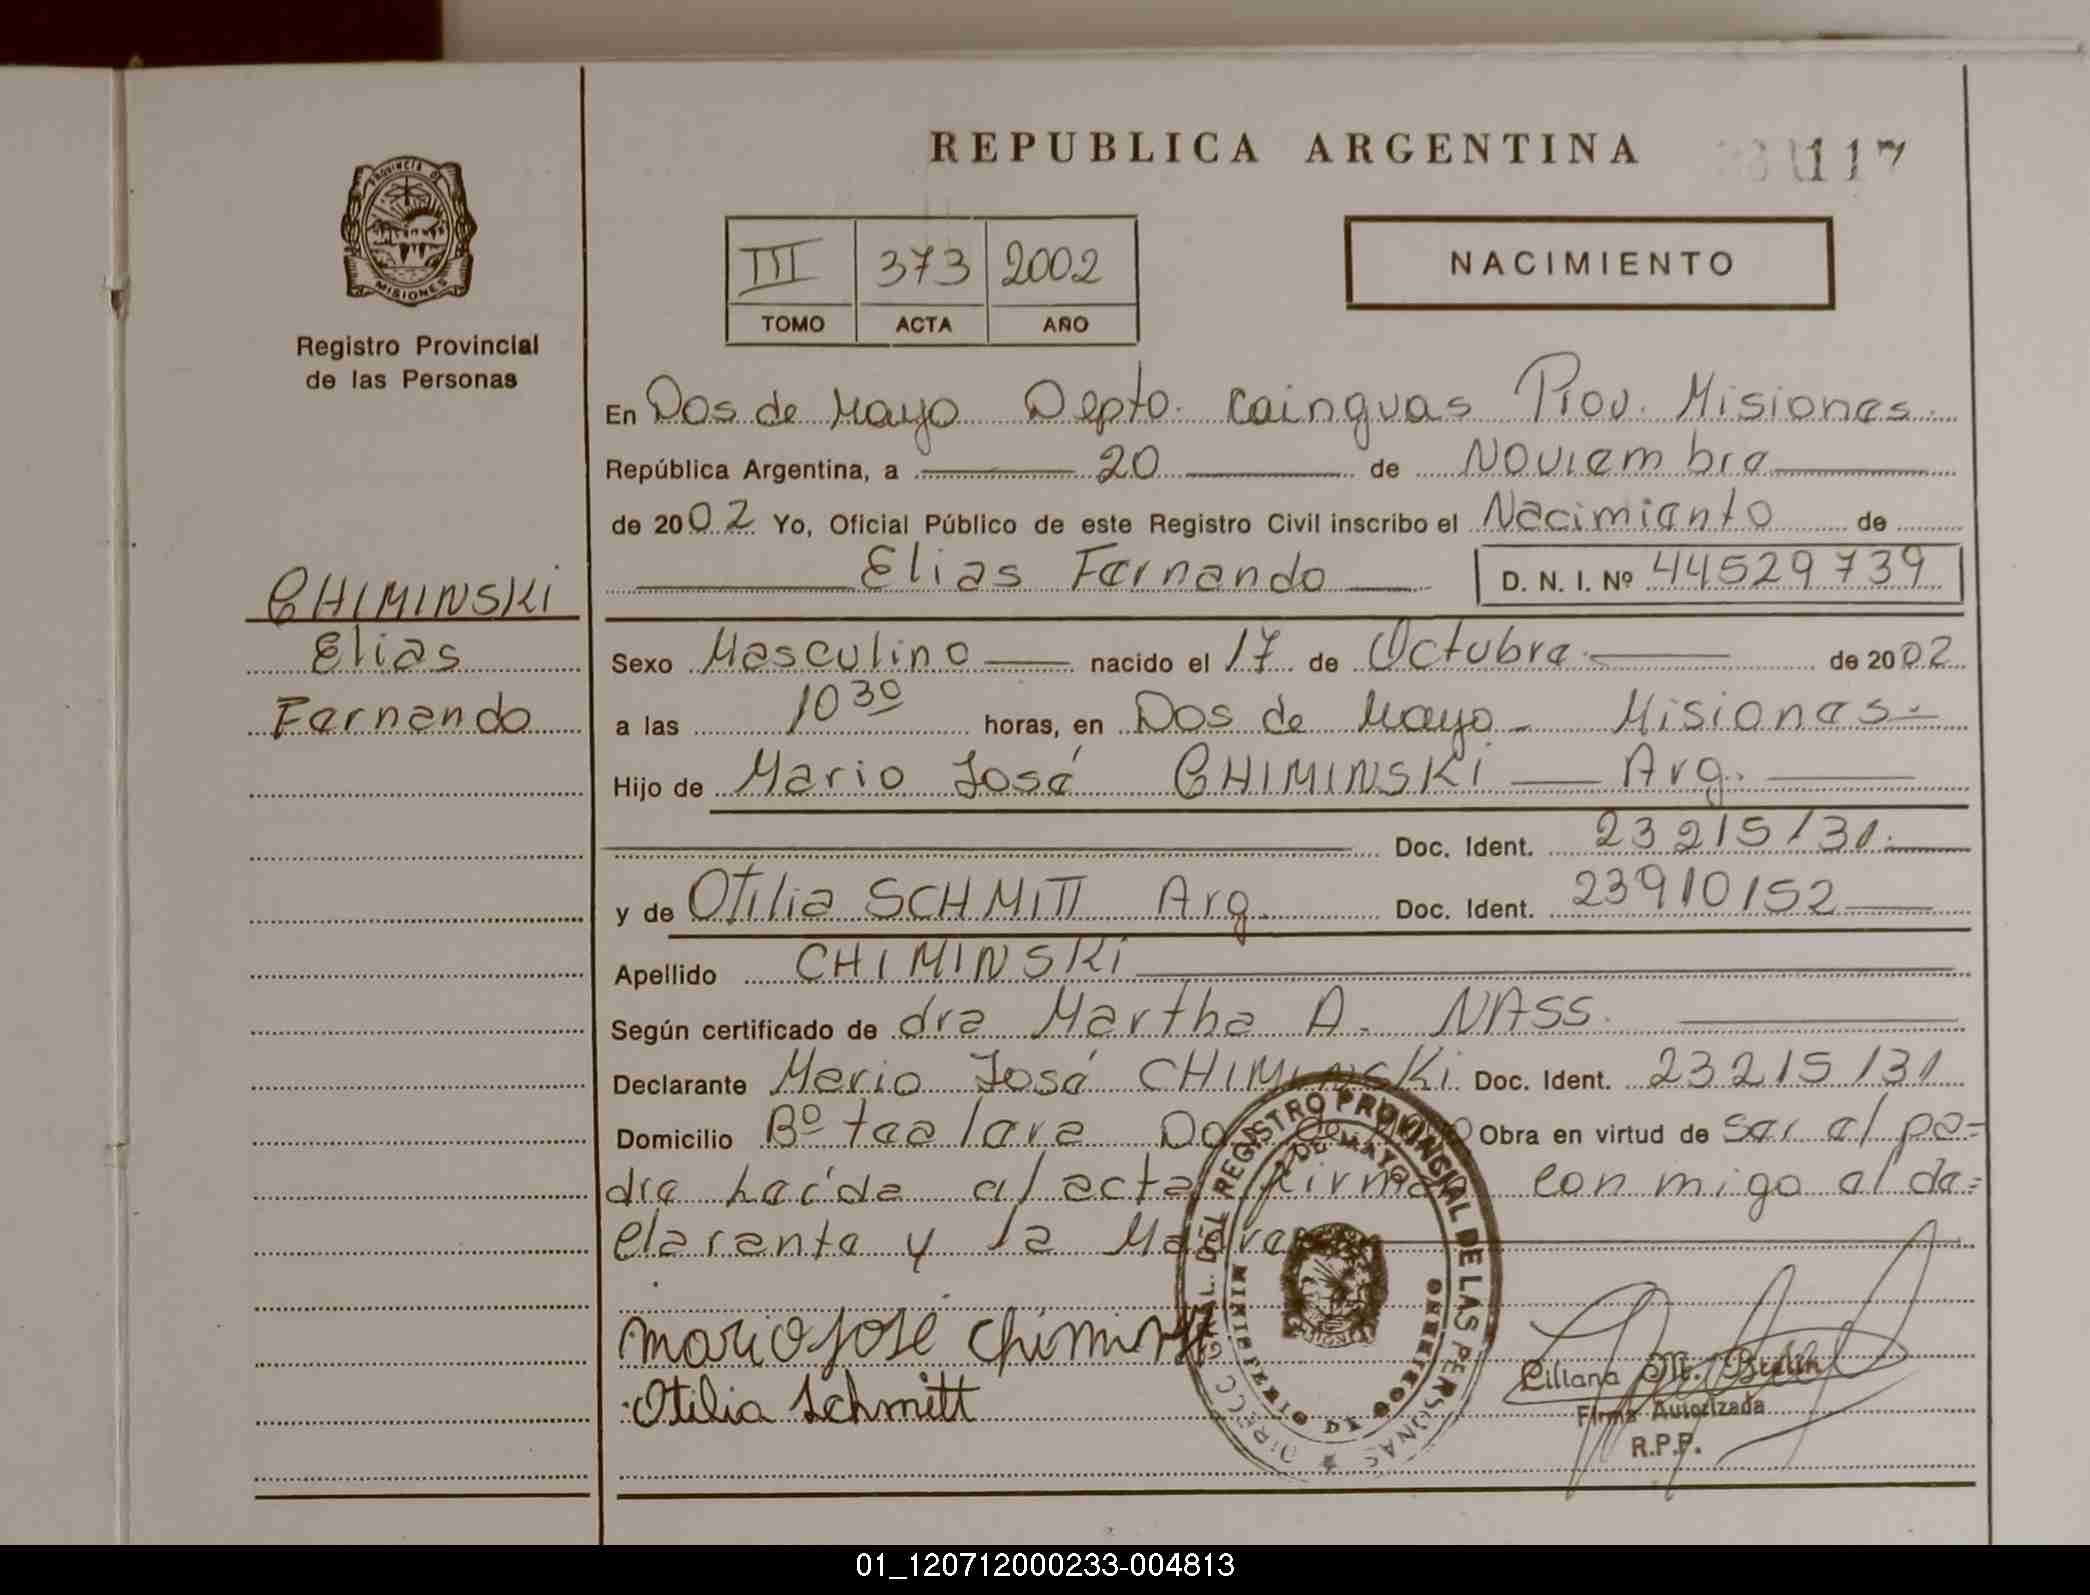 REPUBLICA ARGENTINA
117
PROVINCIA DE
MISIONES
Registro Provincial
de las Personas
III 373 2002
TOMO ACTA AÑO
NACIMIENTO
En Dos de Mayo Depto. Cainguas Prov. Misiones.
República Argentina, a 20 de Noviembre
de 2002 Yo, Oficial Público de este Registro Civil inscribo el Nacimiento de
Elias Fernando D. N. I. Nº 44529739
CHIMINSKI
Elias
Fernando
Sexo Masculino nacido el 17 de Octubre de 2002
a las 10 30 horas, en Dos de Mayo - Misiones -
Hijo de Mario José CHIMINSKI Arg.
Doc. Ident. 23215131.
y de Otilia SCHMITT Arg. Doc. Ident. 23910152
Apellido CHIMINSKI
Según certificado de dra Martha A. NASS.
Declarante Mario José CHIMINSKI Doc. Ident. 23215131
Domicilio Bº Obra en virtud de ser el pa=
dre Leída el acta firman con migo el de=
clarante y la Madre
Mario José Chiminski
Otilia Schmitt
DIRECC. GRAL. DEL REGISTRO PROVINCIAL DE LAS PERSONAS
2 DE MAYO
MINISTERIO DE GOBIERNO
Liliana M.
Firma Autorizada
R.P.P.
01_120712000233-004813